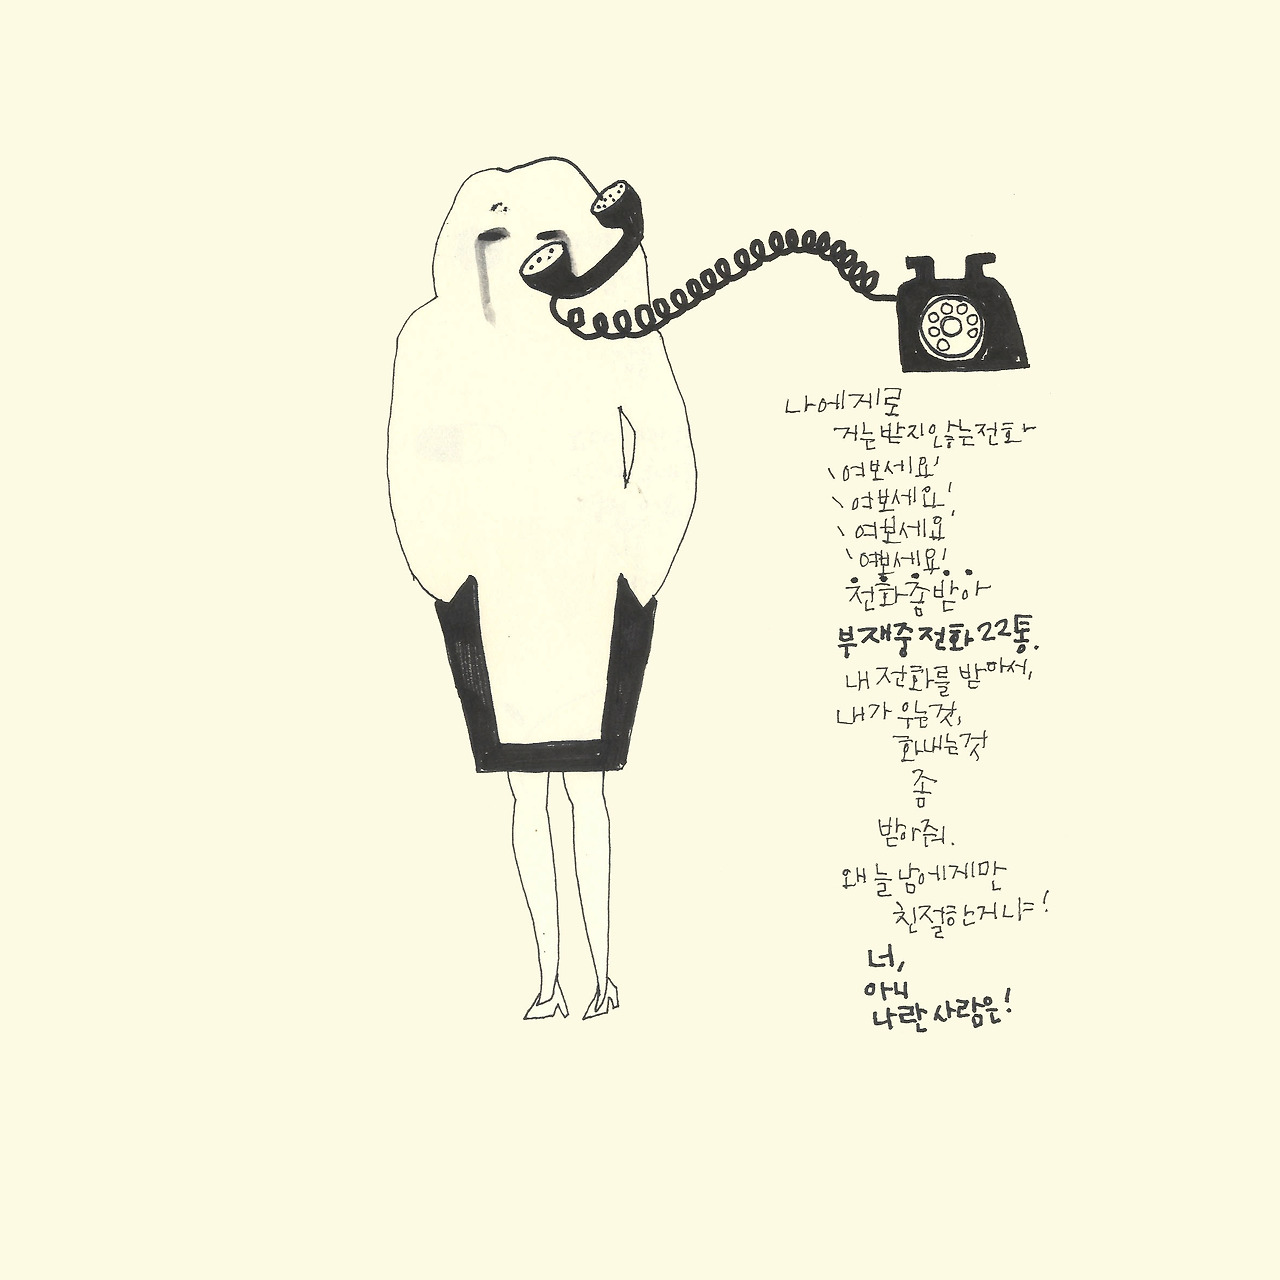 나에게로
거는 받지 않는 전화
'여보세요'
'여보세요'
'여보세요'
'여보세요'
전화 좀 받아
부재중 전화 22통.
내 전화를 받아서,
내가 우는 것,
화내는 것
좀
받아줘.
왜 늘 남에게만
친절한 거니!
너,
아니
나란 사람은!